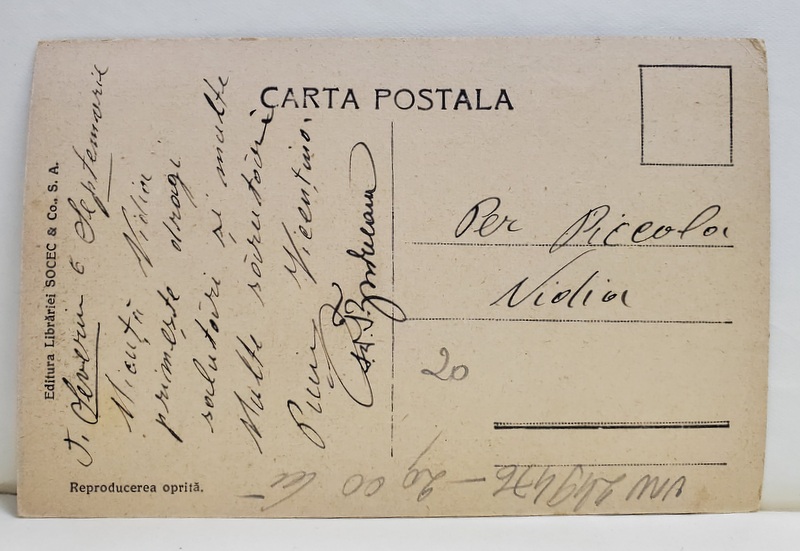 CARTA POSTALA
Editura Librăriei SOCEC & Co., S. A.
T. Severin 6 Septemvrie
Micuță Vidia
primește dragi
salutări și multe
Multe sărutări
Puiu Vicențiu
Per Piccola
Vidia
20
Reproducerea oprită.